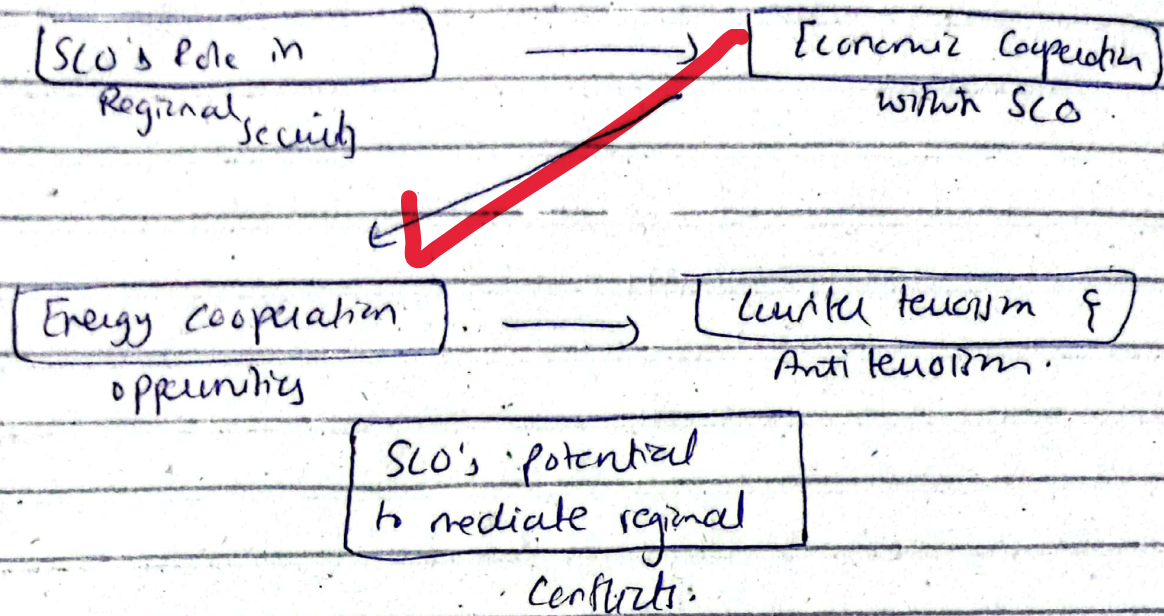 SCO's Role in
Regional Security
Economic Cooperation
within SCO.
Energy cooperation
opportunities
Counter terrorism &
Anti terrorism.
SCO's potential
to mediate regional
Conflicts.